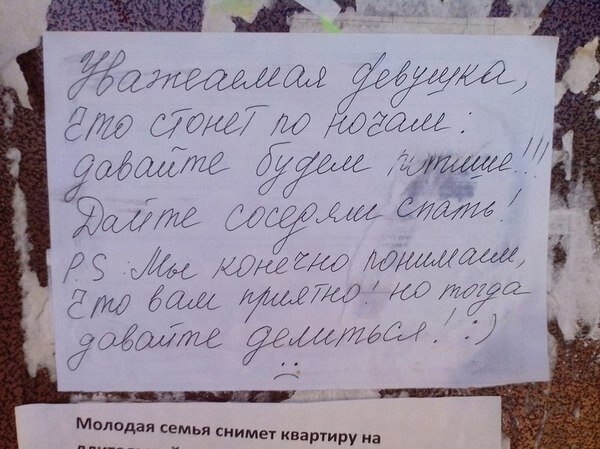 Уважаемая девушка,
что стонет по ночам:
давайте будем потише!!!
Дайте соседям спать!
P.S: Мы конечно понимаем,
что вам приятно! но тогда
давайте делиться! :)
:(
Молодая семья снимет квартиру на